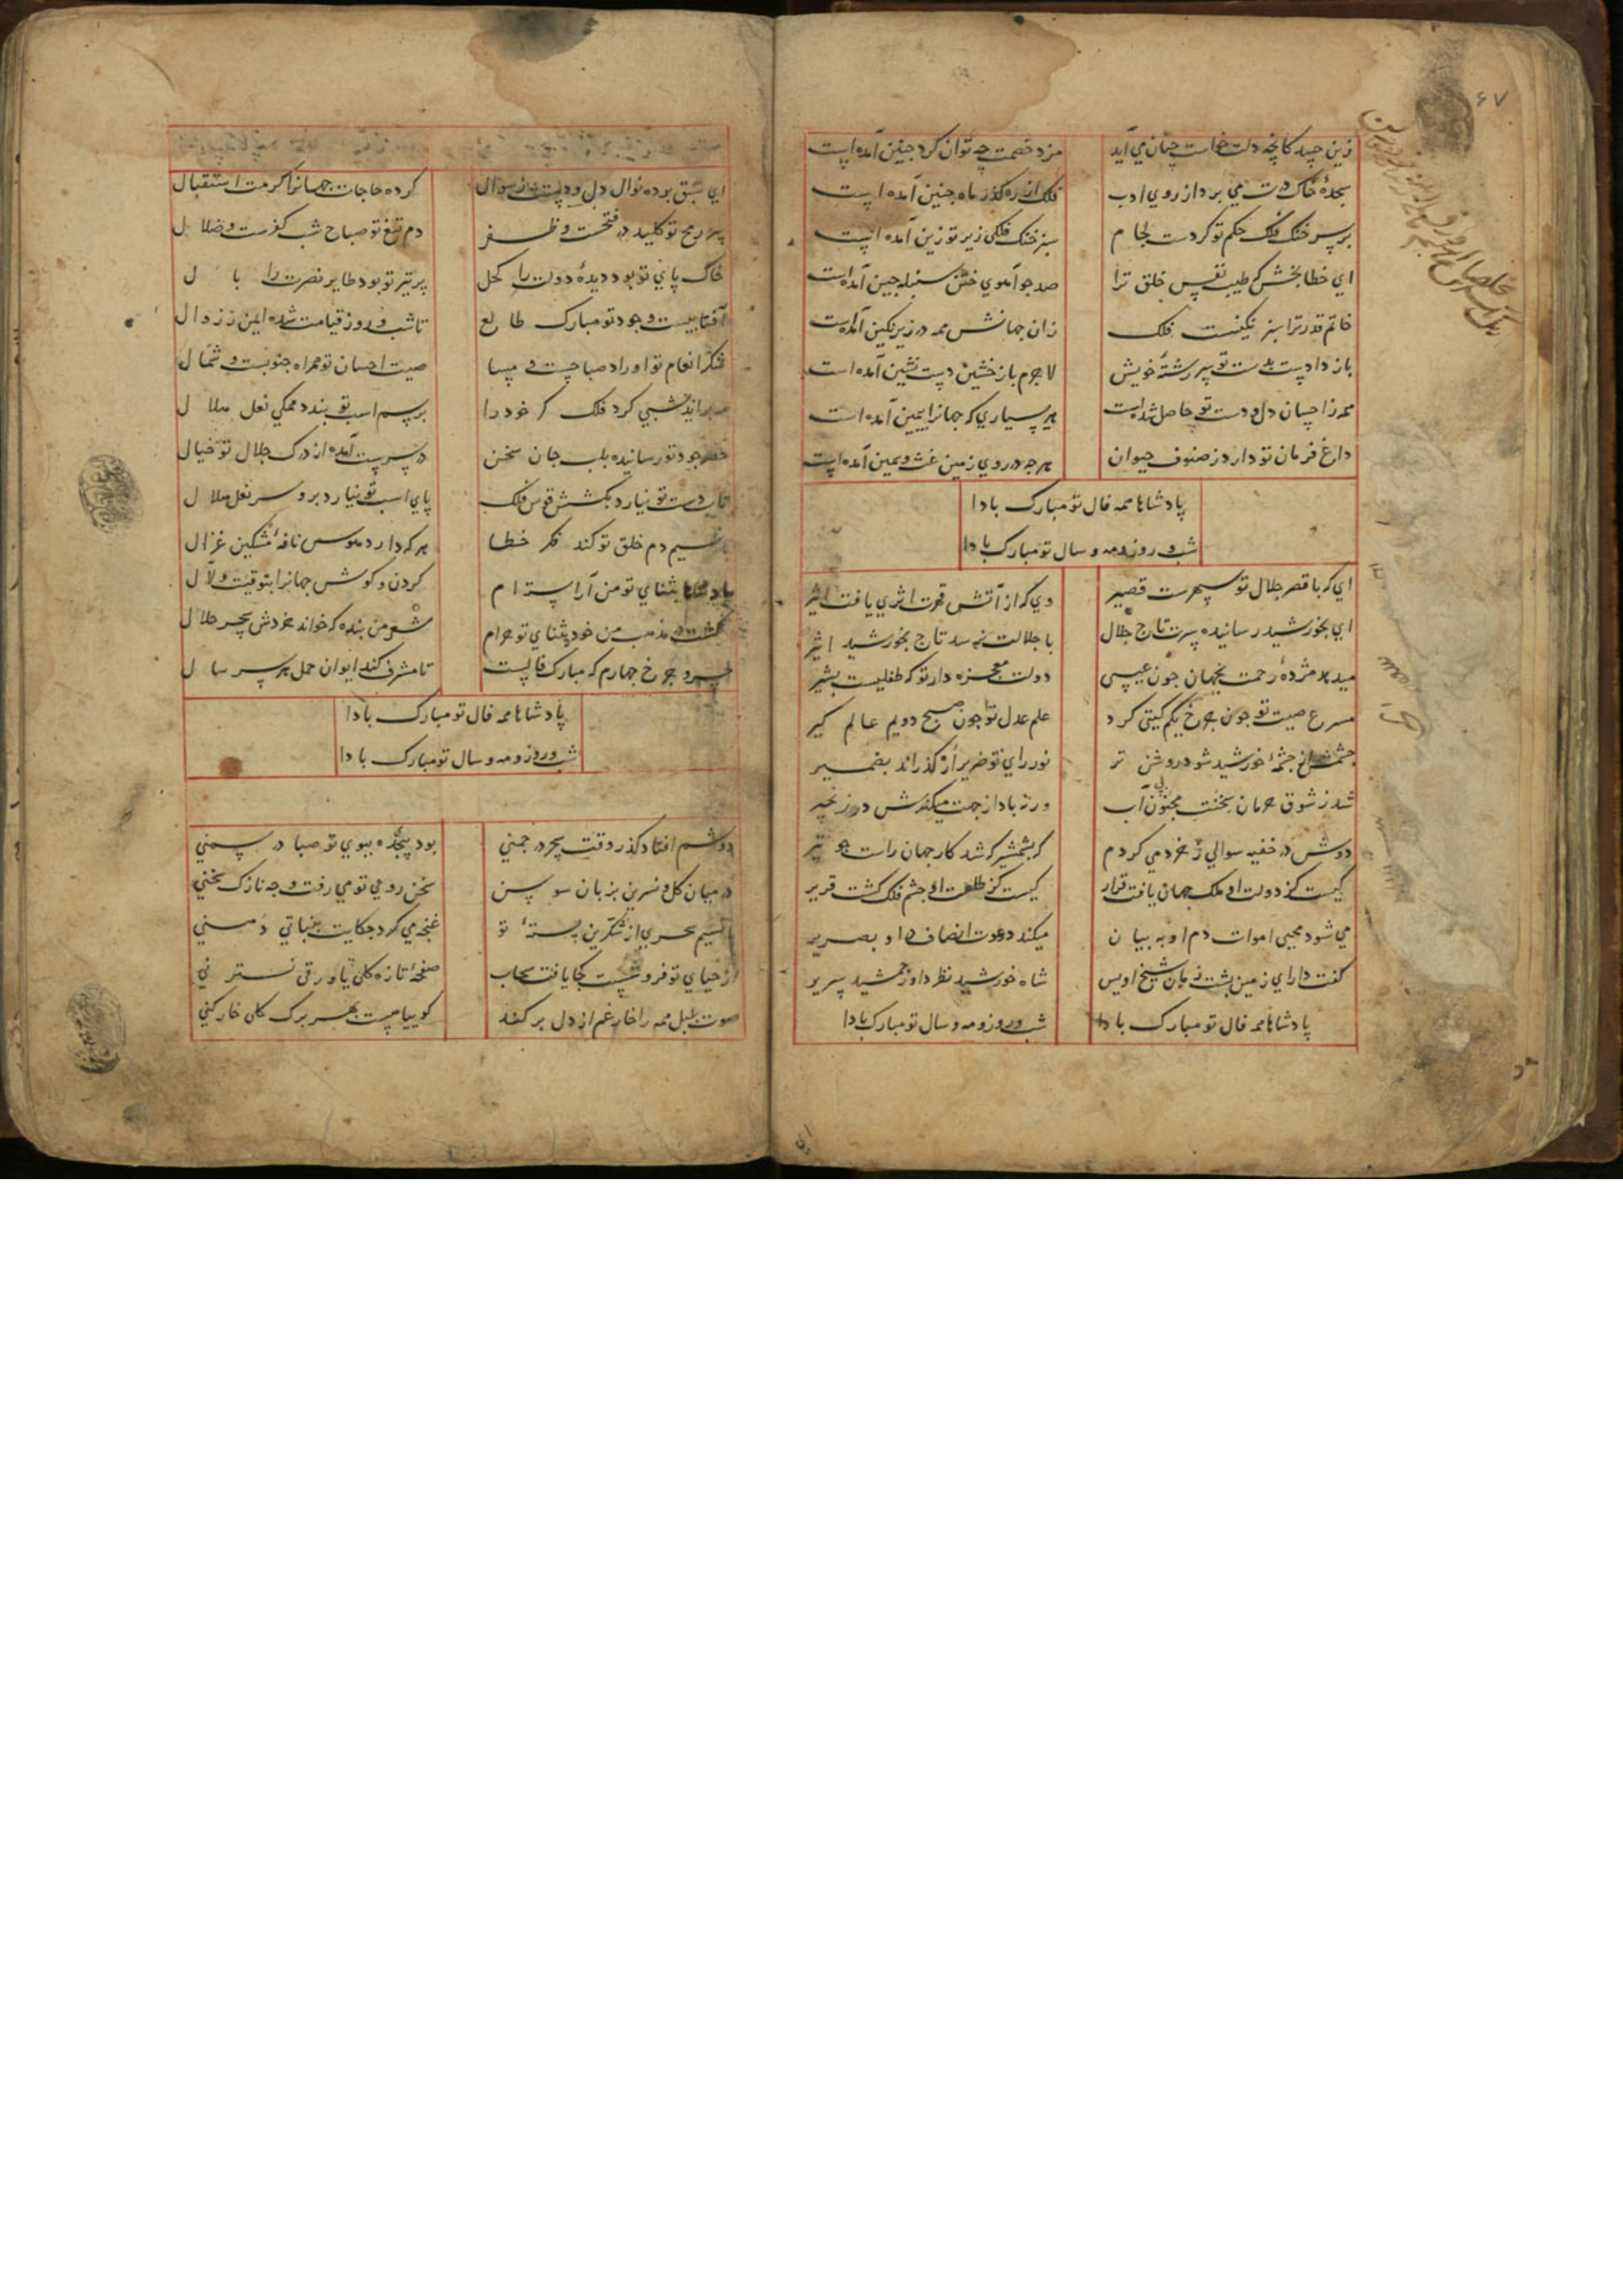 ۶۷
زین حسد کانچه دلت خواست چنان می آید مزد خصمت چه توان کرد چنین آمده است
سجدهٔ خاک درت می برد از روی ادب فلک از رهکذر ماه جبین آمده است
بر سر خنک فلک حکم تو کردست لجام سبز خنک فلکی زیر تو زین آمده است
ای خطا بخش که طیب نفس خلق ترا صد جو آهوی ختن سنبله چین آمده است
خاتم قدر ترا سبز نکینست فلک زان جهانش همه در زیر نکین آمده است
باز دادست بدست تو سر رشته خویش لاجرم باز خشین دست نشین آمده است
همه زاحسان دل و دست تو حاصل شده است هر یساری که جهانرا بیمین آمده است
داغ فرمان تو دارد ز صنوف حیوان هرجه در روی زمین غث و سمین آمده است
پادشاها همه فال تو مبارک بادا
شب و روز و مه و سال تو مبارک بادا
ای که با قصر جلال تو سپهرست قصیر وی که از آتش قهرت اثری یافت اثیر
ای بخورشید رسانیده سرت تاج جلال با جلالت نرسد تاج بخورشید اثیر
میدهد مژدهٔ رحمت بجهان جون عیسی دولت معجزه دار تو که طفلیست بشیر
مسرع صیت تو جون جرخ یکم کیتی کرد علم عدل تو جون صبح دویم عالم کیر
جشمش از جشمهٔ خورشید شود روشن تر نور رای تو ضریر ار کذراند بضمیر
شد ز شوق مجنون آب ورنه باد از جهت میکندش در زنجیر
دوش در خفیه سوالی ز خرد می کردم که بشمشیر که شد کار جهان راست جو تیر
کیست کز دولت او ملک جهان یافت قرار کیست کز طلعت او جشم فلک کشت قریر
می شود محیی اموات دم او به بیان میکند دعوت انصاف در او بصریر
کفت دارای زمین پشت زمان شیخ اویس شاه خورشید نظر داور جمشید سریر
پادشاها همه فال تو مبارک بادا شب و روز و مه و سال تو مبارک بادا
ای سبق برده نوال دل و دستت ز سوال کرده حاجات جهانرا کرمت استقبال
سر رمح تو کلید در فتحست و ظفر دم تیغ تو صباح شب کفرست و ضلال
خاک پای تو بود دیدهٔ دولت را کحل پر تیر تو بود طایر نصرت را بال
آفتابیست وجود تو مبارک طالع تا شب و روز قیامت شده ایمن ز زوال
شکر انعام تو اوراد صباحست و مسا صیت احسان تو همراه جنوبست و شمال
شبی کرد فلک خود را بر سم اسب تو بندد همکی نعل هلال
خضر جود تو رسانیده بلب جان سخن در سرست آمده از درک جلال تو خیال
دست تو نیارد بکشش قوس فلک پای اسب تو نیارد بر و سر نعل هلال
نسیم دم خلق تو کند فکر خطا هر که دارد هوس نافهٔ مشکین غزال
بثنای تو من آراسته ام کردن و کوش جهانرا بتو قیت و لآل
کشت در مذهب من خود بثنای تو حرام شعر من بنده که خواند خردش سحر حلال
جرخ جهارم که مبارک فالیست تا مشرف کند ایوان حمل هر سر سال
پادشاها همه فال تو مبارک بادا
شب و روز و مه و سال تو مبارک بادا
دوشم افتاد کذر وقت سحر در جمنی بود پیجیده ببوی تو صبا در سمنی
در میان کل و نسرین بزبان سوسن سخن روی تو می رفت و جه نازک سخنی
با نسیم سحری از شکرین پستهٔ تو غنجه می کرد حکایت بنباتی دهنی
از حیای تو فرو شست کجا یافت سحاب صفحهٔ تازه کلی یا ورقی نسترنی
صوت بلبل همه را خار غم از دل برکند کوییا هست بهر برک کلی خارکنی